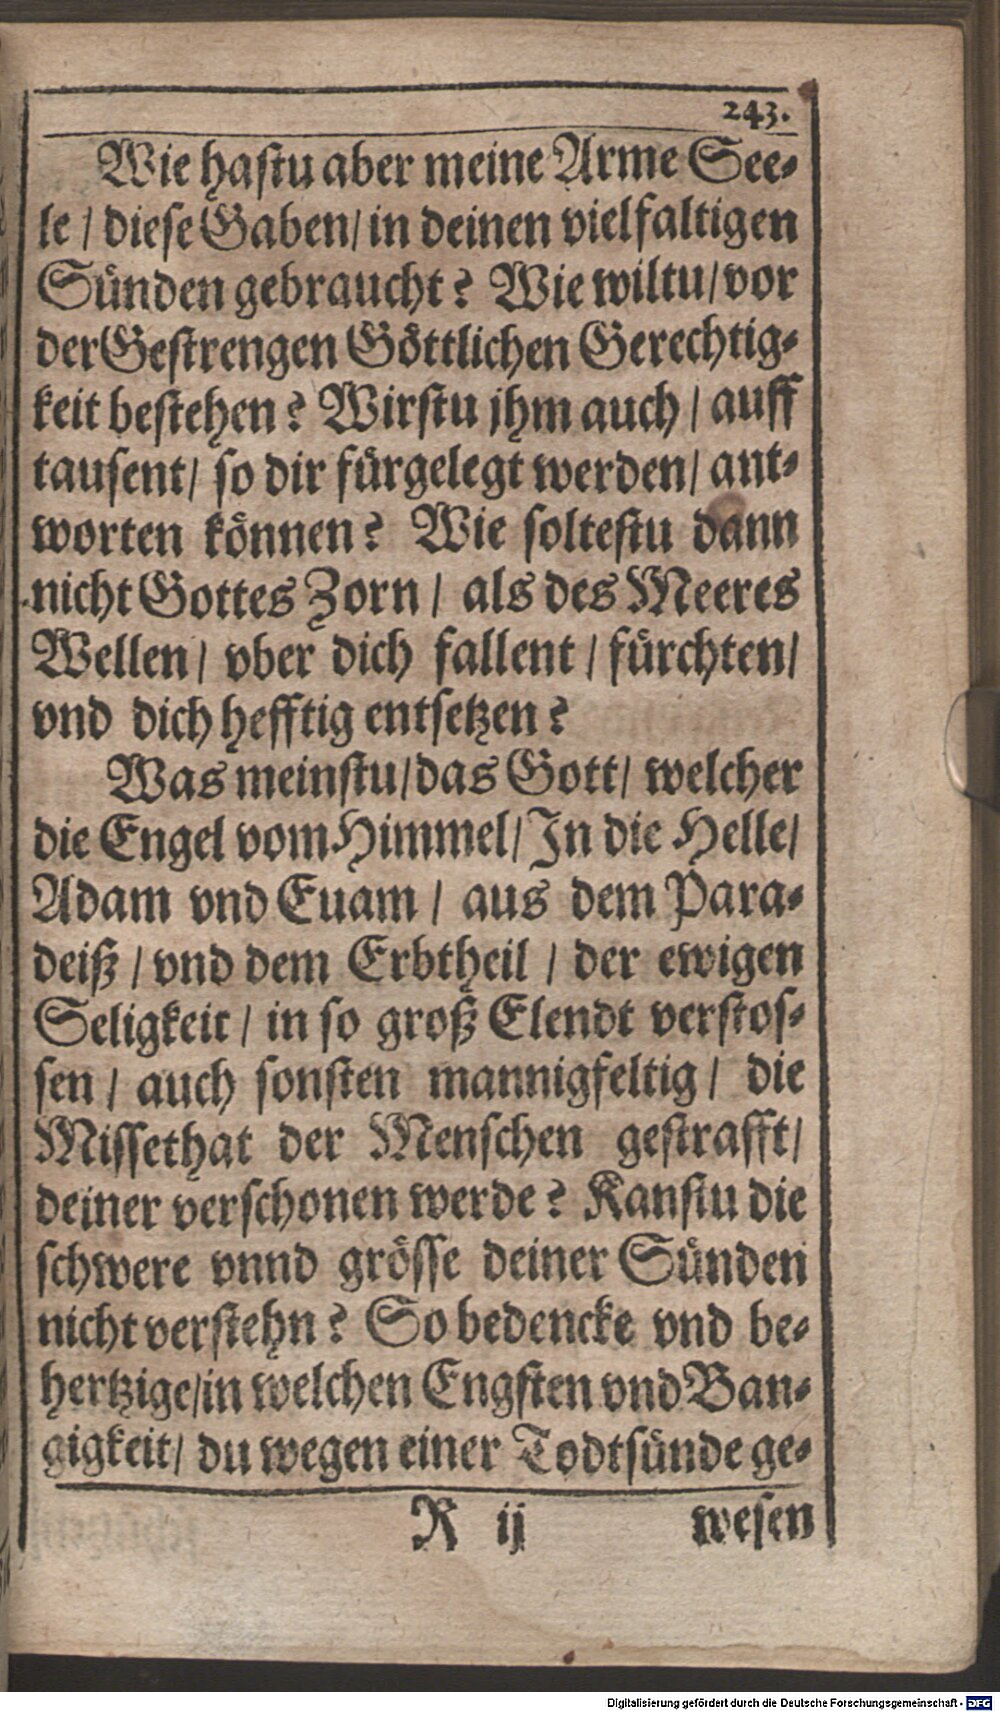 243.
Wie hastu aber meine Arme See-
le / diese Gaben / in deinen vielfaltigen
Sünden gebraucht? Wie wiltu / vor
der Gestrengen Göttlichen Gerechtig-
keit bestehen? Wirstu jhm auch / auff
tausent / so dir fürgelegt werden / ant-
worten können? Wie soltestu dann
nicht Gottes Zorn / als des Meeres
Wellen / vber dich fallent / fürchten /
vnd dich hefftig entsetzen?
Was meinstu / das Gott / welcher
die Engel vom Himmel / In die Helle /
Adam vnd Euam / aus dem Para-
deiß / vnd dem Erbtheil / der ewigen
Seligkeit / in so groß Elendt verstos-
sen / auch sonsten mannigfeltig / die
Missethat der Menschen gestrafft /
deiner verschonen werde? Kanstu die
schwere vnnd grösse deiner Sünden
nicht verstehn? So bedencke vnd be-
hertzige / in welchen Engsten vnd Ban-
gigkeit / du wegen einer Todtsünde ge-
R ij wesen
Digitalisierung gefördert durch die Deutsche Forschungsgemeinschaft - DFG